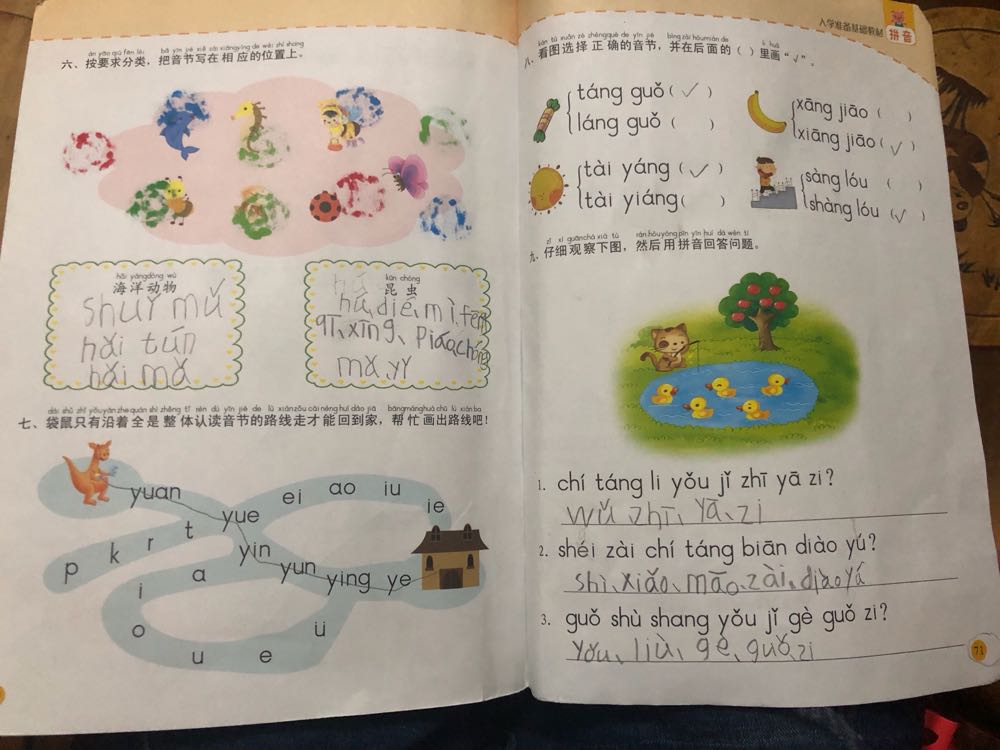 àn yāo qiú fēn lèi bǎ yīn jié xiě zài xiāng yìng de wèi zhì shang
六、按要求分类，把音节写在相应的位置上。
hǎi yáng dòng wù
海洋动物
shuǐ mǔ
hǎi tún
hǎi mǎ
kūn chóng
昆虫
hú、dié、mì、fēng
qī、xīng、piáo、chóng
mǎ、yǐ
dài shǔ zhǐ yǒu yán zhe quán shì zhěng tǐ rèn dú yīn jié de lù xiàn zǒu cái néng huí dào jiā bāng máng huà chū lù xiàn ba
七、袋鼠只有沿着全是整体认读音节的路线走才能回到家，帮忙画出路线吧！
yuan
ei ao iu
ie
yue
t
r
k
p
yin
yun
ying
ye
a
i
o
u
e
ü
入学准备基础教材
拼音
kàn tú xuǎn zé zhèng què de yīn jié bìng zài hòu miàn de lǐ huà
八、看图选择正确的音节，并在后面的（ ）里画“√”。
táng guǒ（√）
láng guǒ（ ）
xāng jiāo（ ）
xiāng jiāo（√）
tài yáng（√）
tài yiáng（ ）
sàng lóu（ ）
shàng lóu（√）
zǐ xì guān chá xià tú rán hòu yòng pīn yīn huí dá wèn tí
九、仔细观察下图，然后用拼音回答问题。
1. chí táng li yǒu jǐ zhī yā zi?
wǔ、zhī、yā、zi
2. shéi zài chí táng biān diào yú?
shì、xiǎo、māo、zài、diào yú
3. guǒ shù shang yǒu jǐ gè guǒ zi?
yǒu、liù、gè、guǒ、zi
71